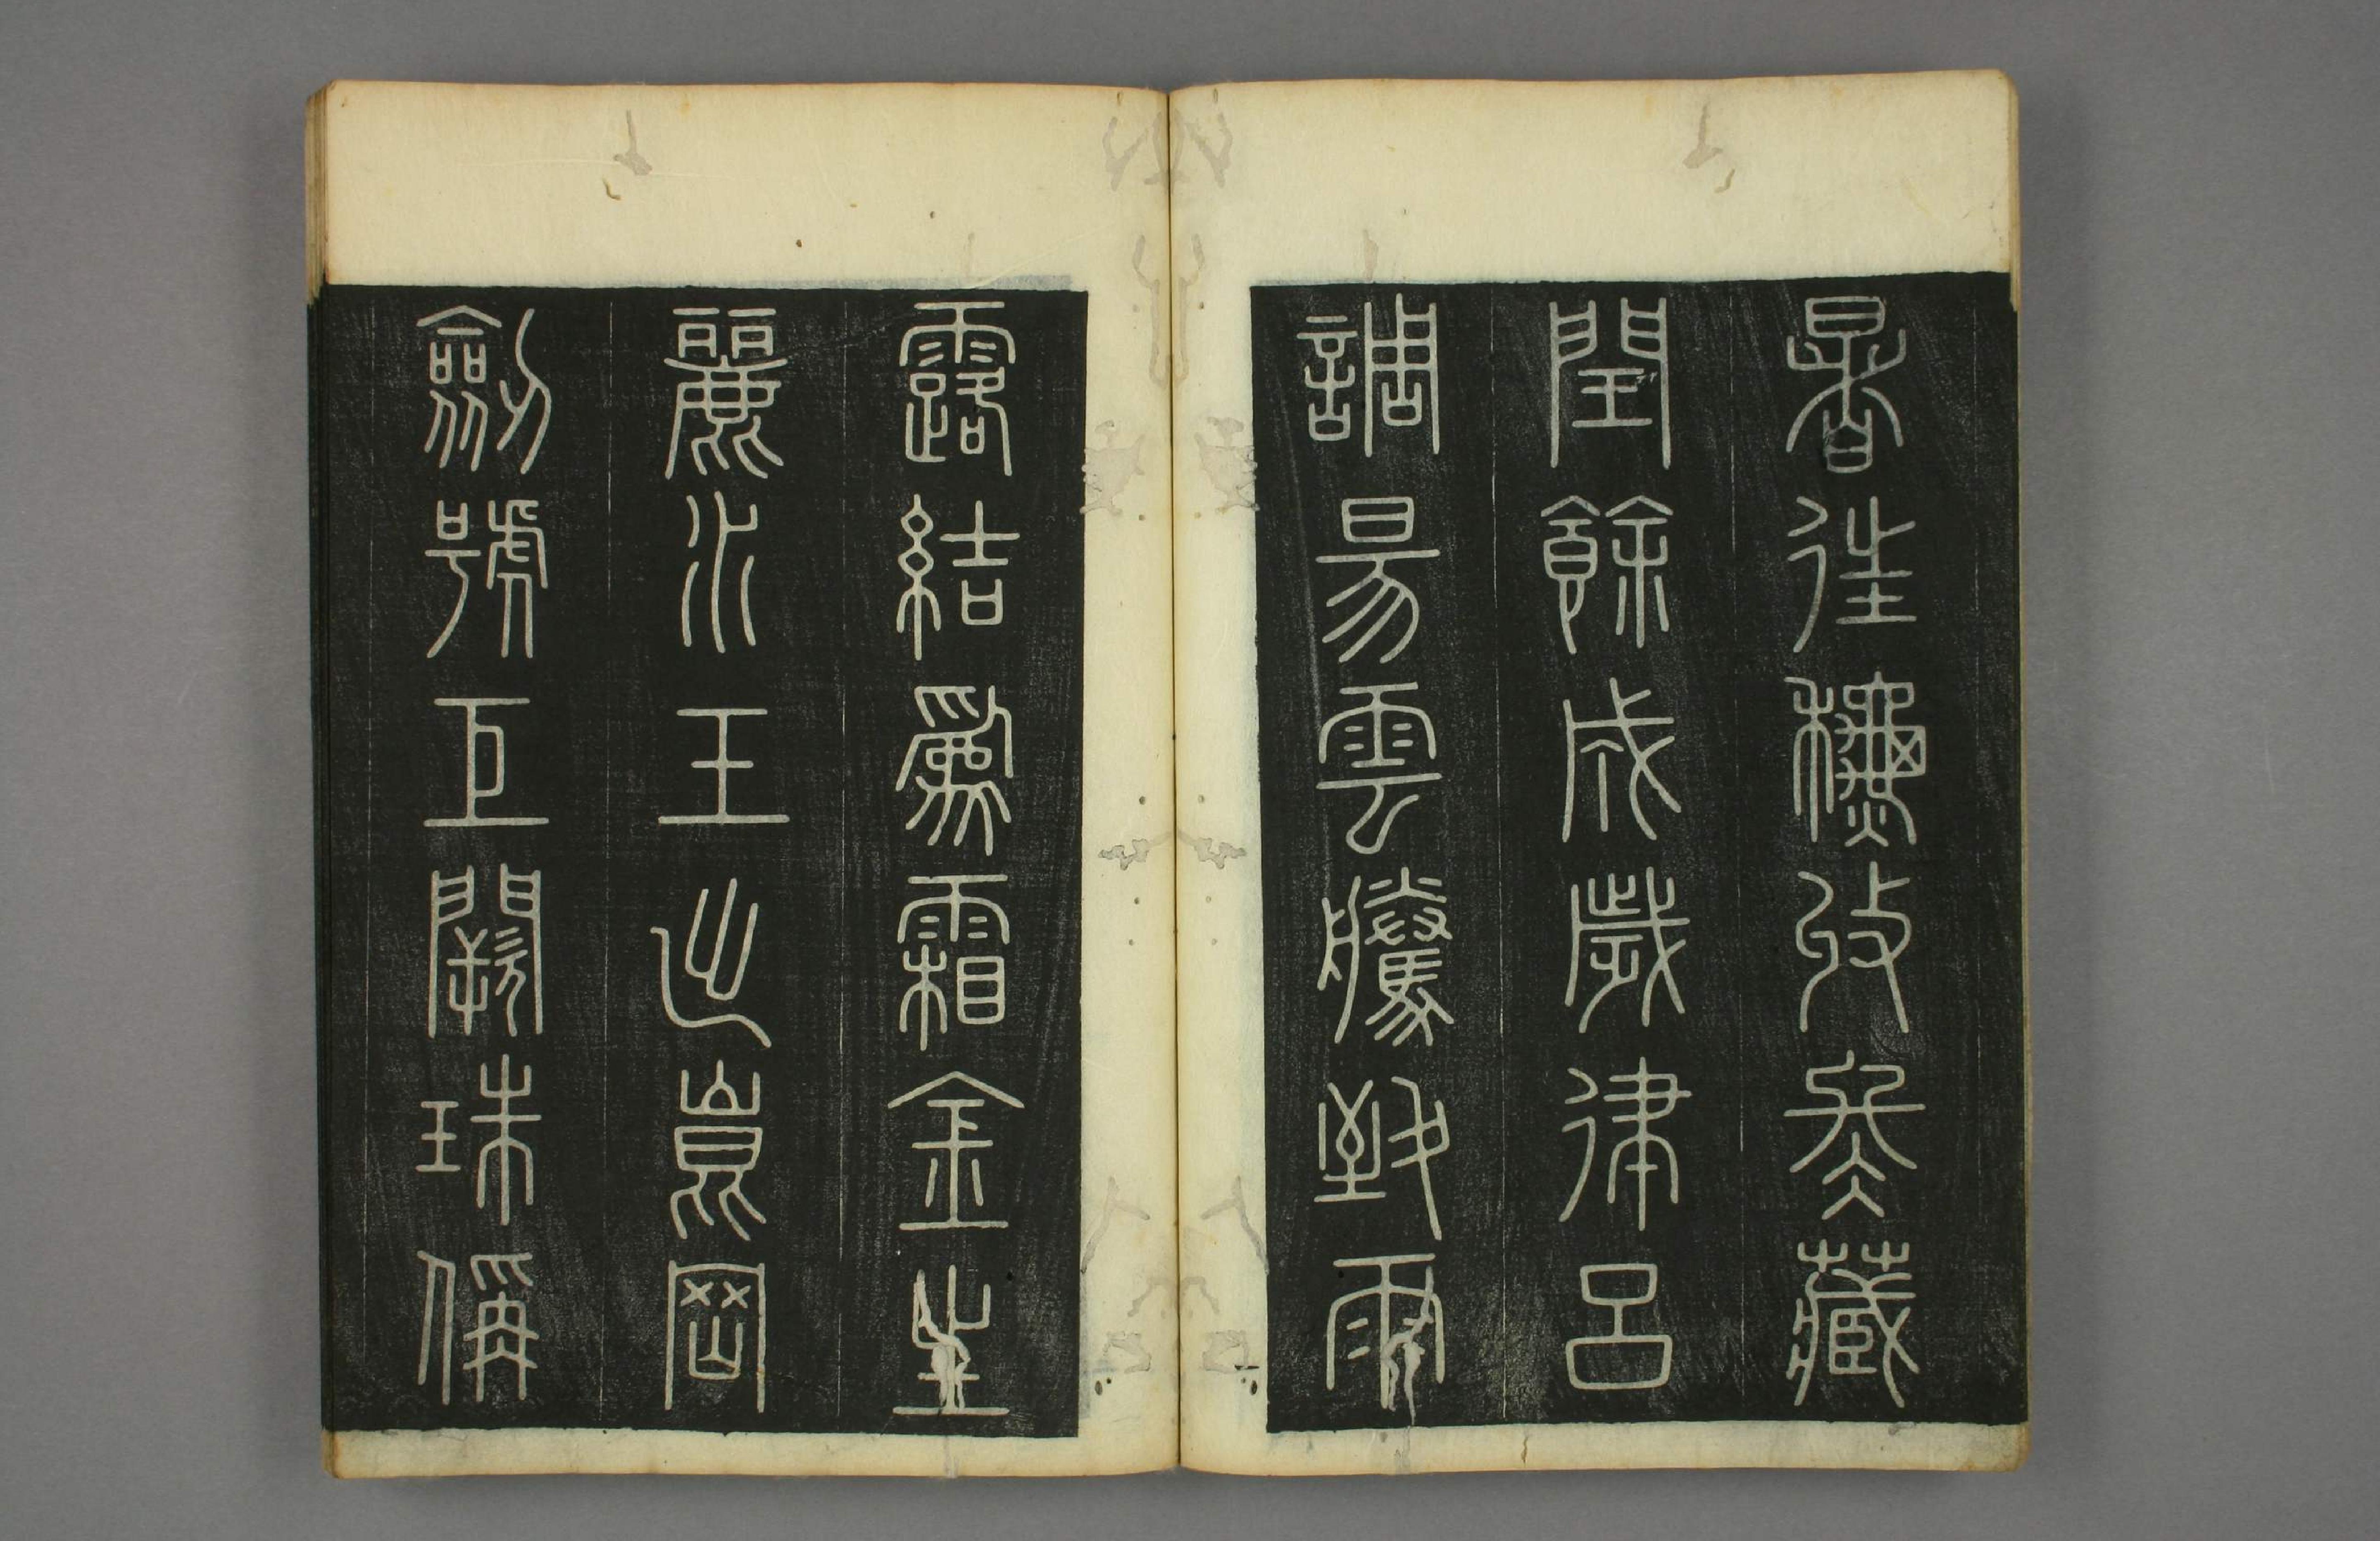 暑往秋收冬藏
閏餘成歲律呂
調昜雲騰致雨
露結爲霜金生
麗水玉出崑岡
劍號巨闕珠偁